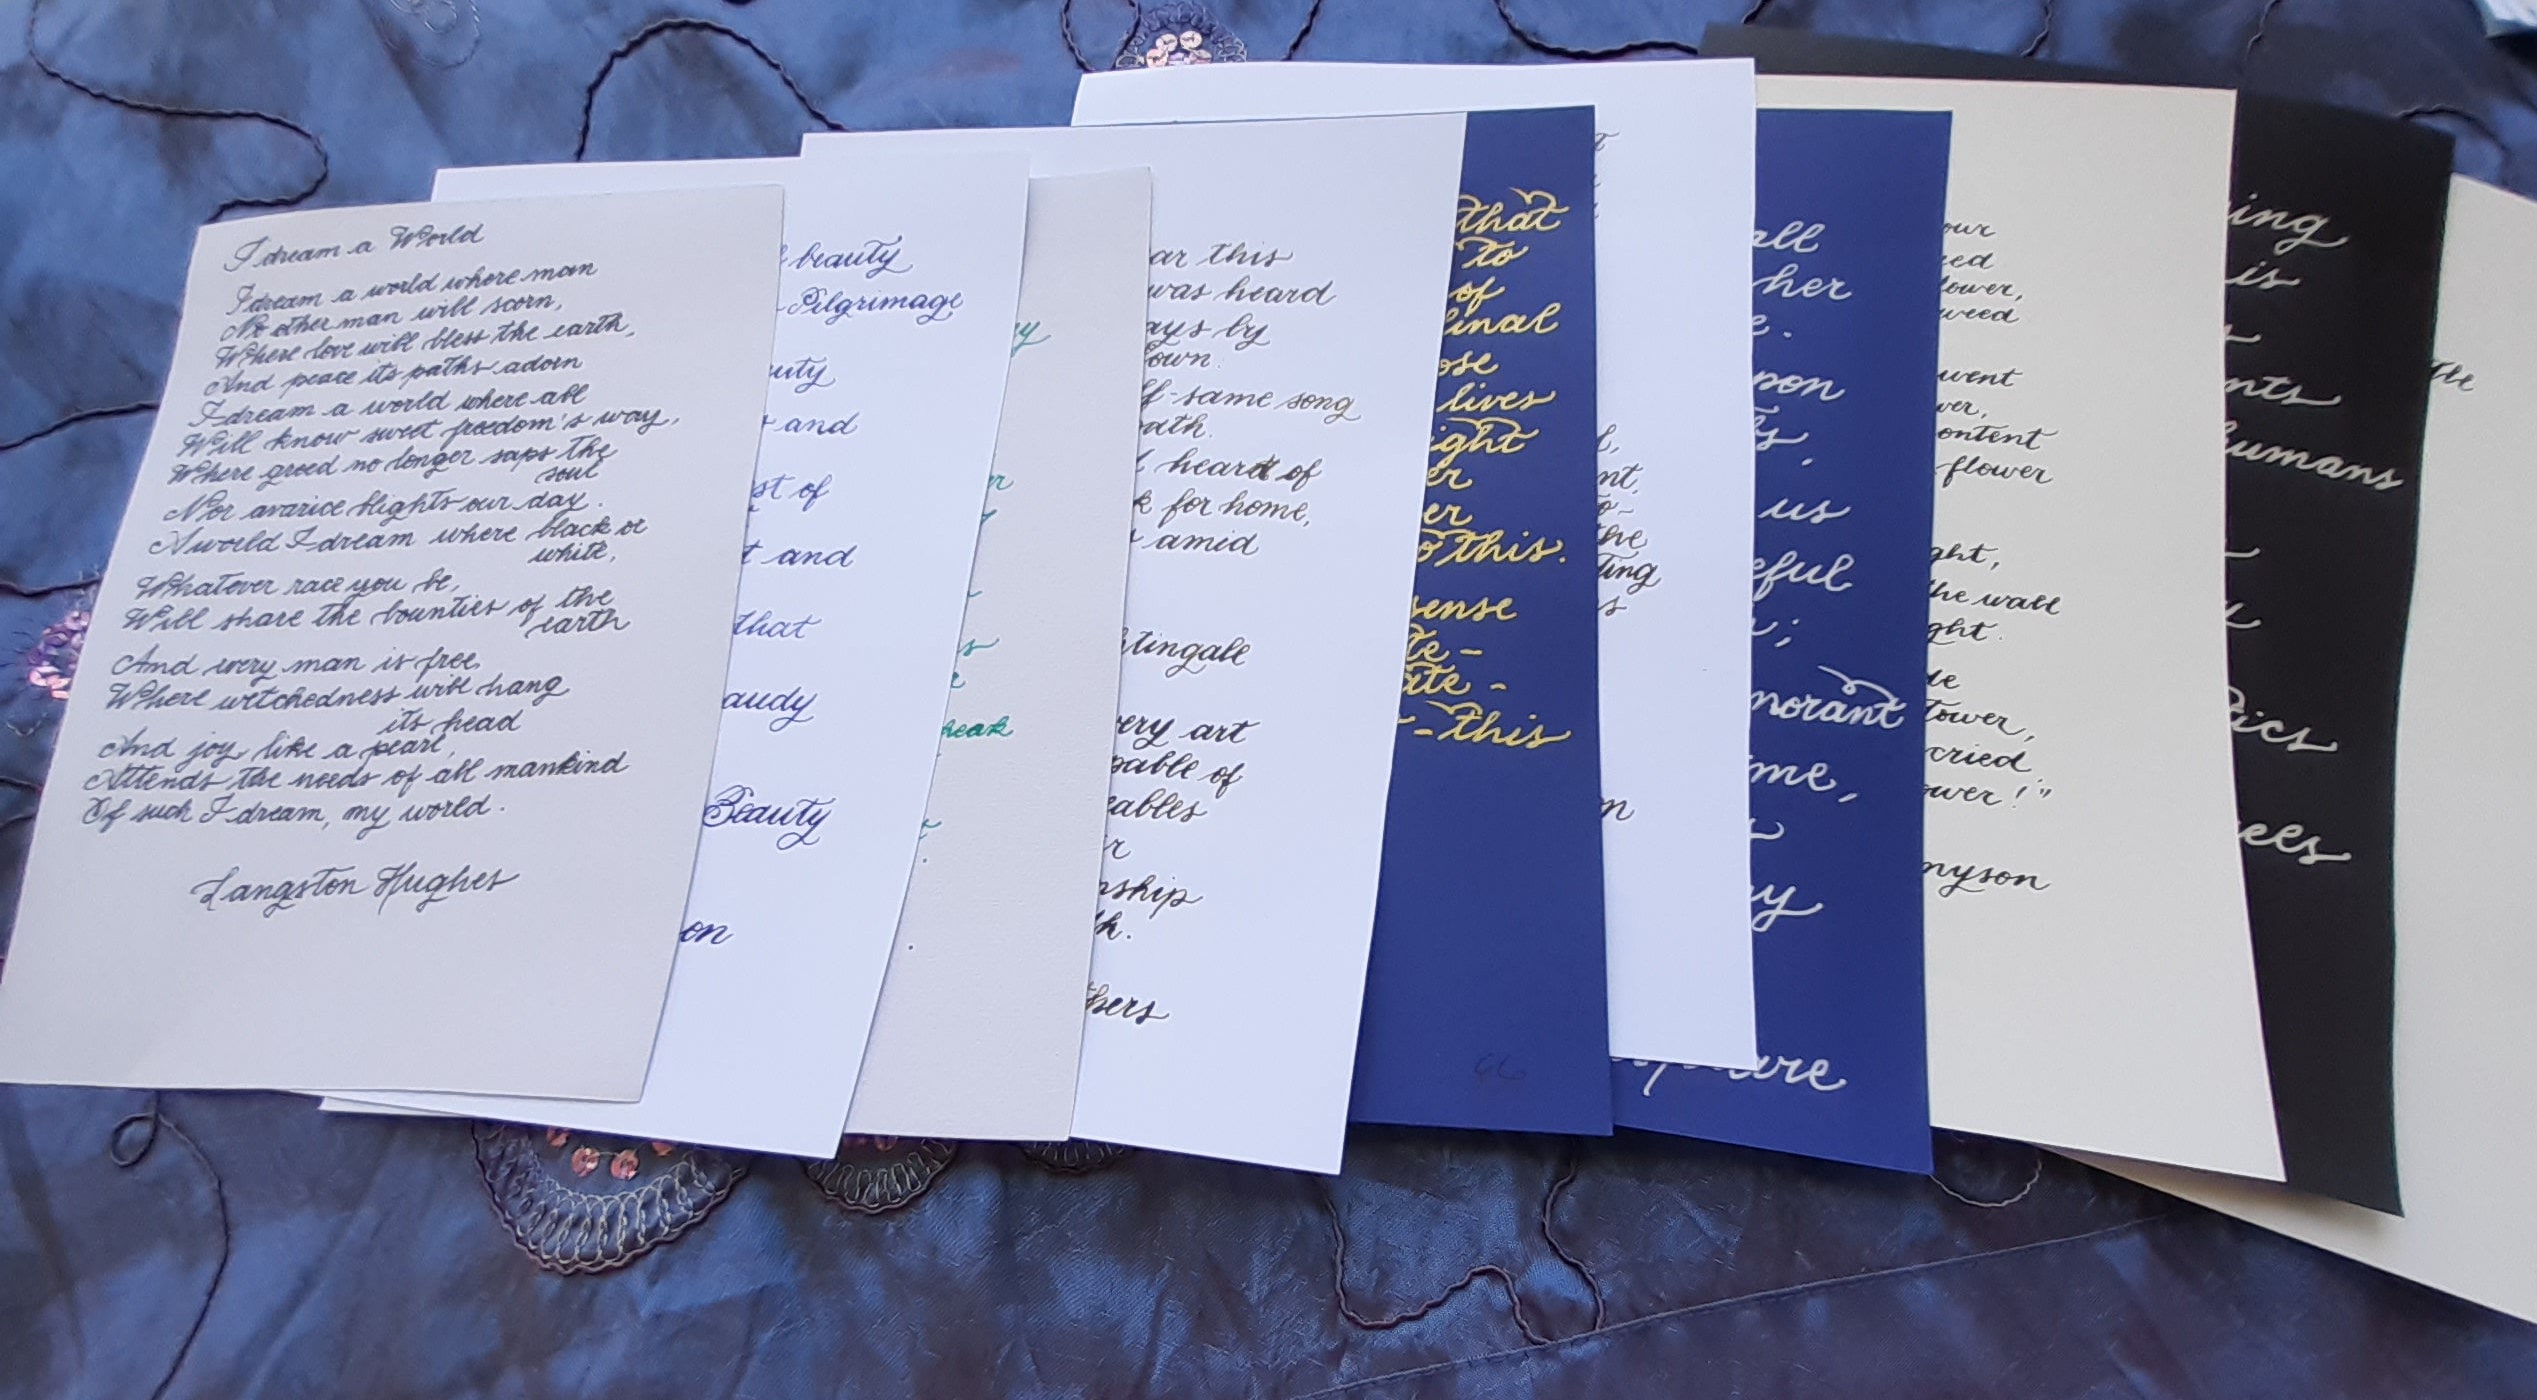 I dream a World
I dream a world where man
No other man will scorn,
Where love will bless the earth,
And peace its paths adorn
I dream a world where all
Will know sweet freedom's way,
Where greed no longer saps the
soul
Nor avarice blights our day.
A world I dream where black or
white,
Whatever race you be,
Will share the bounties of the
earth
And every man is free,
Where wretchedness will hang
its head
And joy, like a pearl,
Attends the needs of all mankind
Of such I dream, my world.
Langston Hughes
beauty
- Pilgrimage
uty
and
st of
t and
that
audy
Beauty
on
y
er
s
heak
ar this
was heard
ays by
own.
lf-same song
path.
heard of
k for home,
amid
htingale
very art
pable of
eables
r
nship
th.
thers
that
to
of
linal
ose
lives
ight
er
er
o this.
sense
te -
ate -
- this
nt,
to-
the
ting
s
n
all
her
e.
pon
ts,
us
eful
;
norant
me,
s
y
peare
our
ed
lower,
weed
went
wer,
ontent
flower
ght,
the wall
ght.
de
tower,
cried
ower!"
nyson
ing
is
s
nts
humans
ics
eels
the